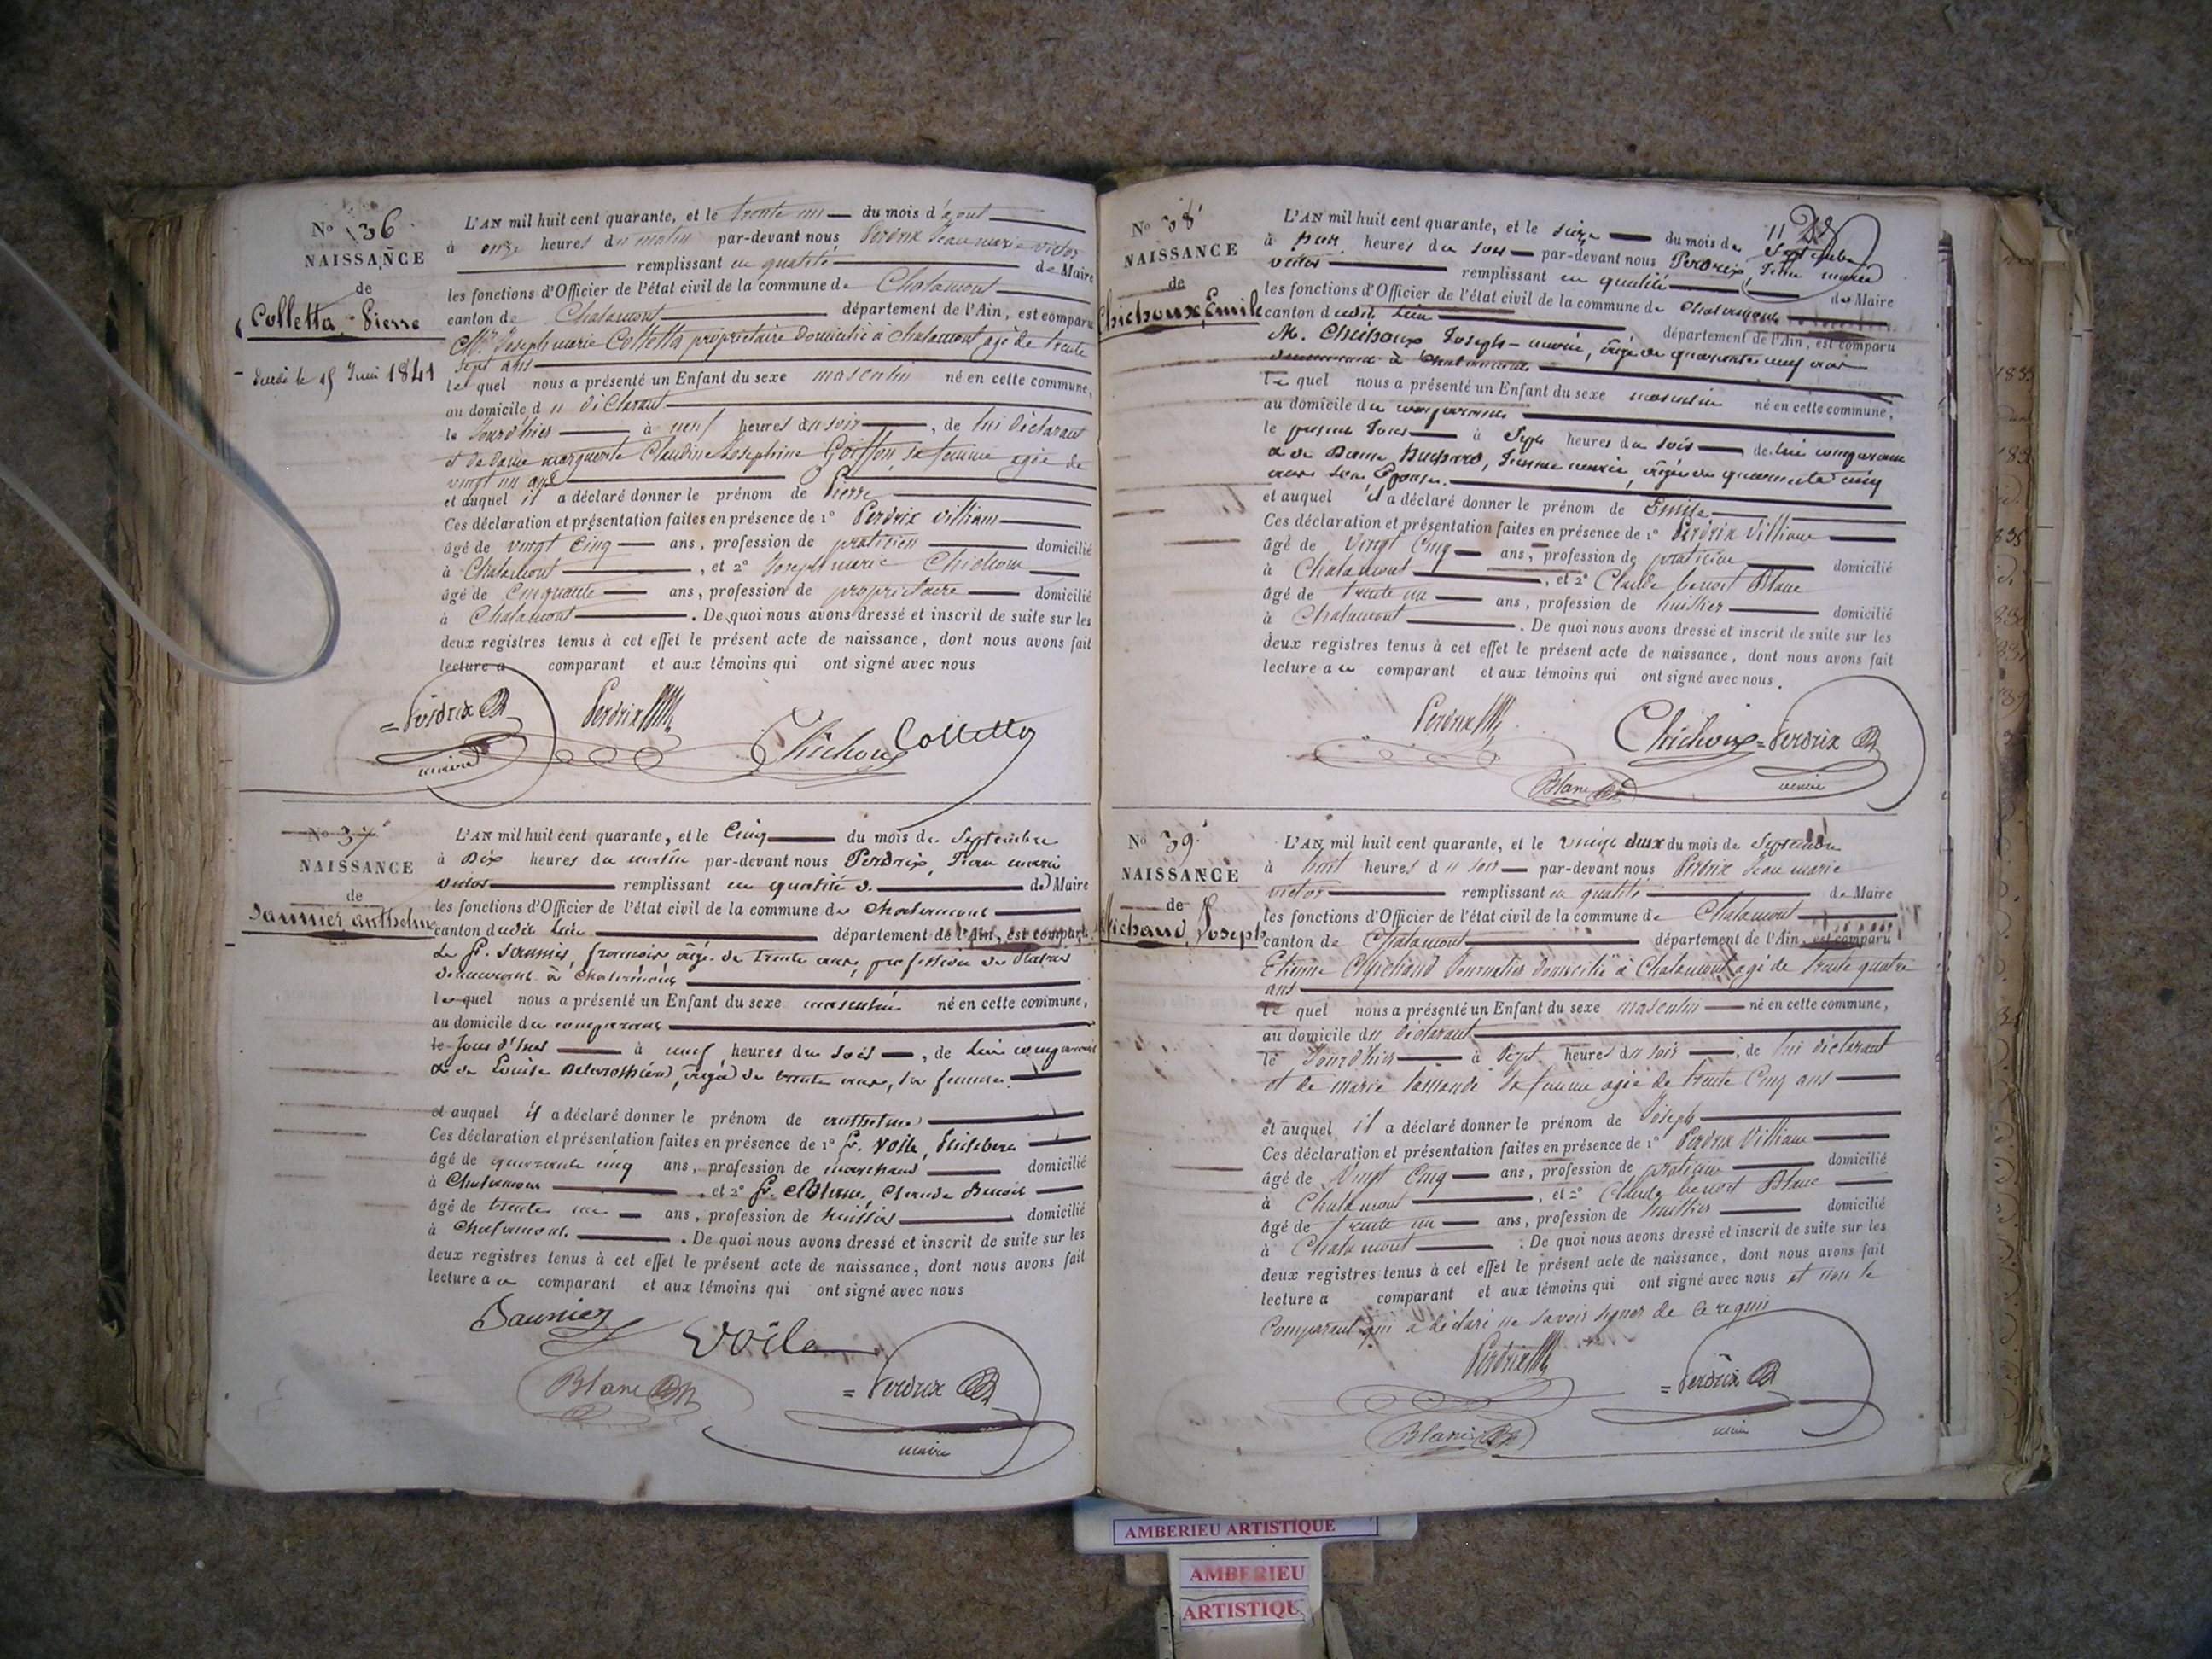 No 36
NAISSANCE
de
Colletta Pierre
décédé le 15 Juin 1841
L'AN mil huit cent quarante, et le trente un du mois d'aout
à onze heures du matin par-devant nous Perdrix Jean marie victor
remplissant en qualité de Maire
les fonctions d'Officier de l'état civil de la commune de Chalamont
canton de Chalamont département de l'Ain, est comparu
Mr. Joseph marie Colletta propriétaire domicilié à Chalamont agé de trente
sept ans
lequel nous a présenté un Enfant du sexe masculin né en cette commune,
au domicile du déclarant
le Jourd'hier à neuf heures du soir, de lui déclarant
et de dame marguerite Claudine Josephine Goiffon, sa femme agée de
vingt un ans
et auquel il a déclaré donner le prénom de Pierre
Ces déclaration et présentation faites en présence de 1° Perdrix villiam
âgé de vingt cinq ans, profession de praticien domicilié
à Chalamont, et 2° Joseph marie Chichoux
âgé de cinquante ans, profession de propriétaire domicilié
à Chalamont. De quoi nous avons dressé et inscrit de suite sur les
deux registres tenus à cet effet le présent acte de naissance, dont nous avons fait
lecture a comparant et aux témoins qui ont signé avec nous
Perdrix Perdrix Chichoux Colletta
maire
No 37
NAISSANCE
de
Saunier anthelme
L'AN mil huit cent quarante, et le Cinq du mois de Septembre
à Dix heures du matin par-devant nous Perdrix, Jean marie
victor remplissant en qualité de Maire
les fonctions d'Officier de l'état civil de la commune de Chalamont
canton dudit lieu département de l'Ain, est comparu
Le Sr. Saunier, françois, âgé de trente ans, profession de
demeurant à Chalamont
lequel nous a présenté un Enfant du sexe masculin né en cette commune,
au domicile du comparant
le Jour d'hier à neuf heures du soir, de lui comparant
& de Louise, âgée de trente ans, sa femme.
et auquel il a déclaré donner le prénom de anthelme
Ces déclaration et présentation faites en présence de 1° Sr. Voile, Philibert
âgé de quarante cinq ans, profession de marchand domicilié
à Chalamont, et 2° Sr. Blanc, Claude Benoit
âgé de trente un ans, profession de huissier domicilié
à Chalamont. De quoi nous avons dressé et inscrit de suite sur les
deux registres tenus à cet effet le présent acte de naissance, dont nous avons fait
lecture au comparant et aux témoins qui ont signé avec nous
Saunier Voile
Blanc Perdrix
maire
No 38
NAISSANCE
de
Chichoux, Émile
L'AN mil huit cent quarante, et le seize du mois de Septembre
à huit heures du soir par-devant nous Perdrix, Jean marie
victor remplissant en qualité de Maire
les fonctions d'Officier de l'état civil de la commune de Chalamont
canton dudit lieu département de l'Ain, est comparu
M. Chichoux Joseph-marie, âgé de quarante neuf ans
demeurant à Chalamont
le quel nous a présenté un Enfant du sexe masculin né en cette commune,
au domicile du comparant
le présent Jour à Sept heures du soir de lui comparant
& de Dame, Jeanne marie, âgée de quarante cinq
ans son Épouse.
et auquel il a déclaré donner le prénom de Emile
Ces déclaration et présentation faites en présence de 1° Perdrix Villiam
âgé de Vingt Cinq ans, profession de praticien domicilié
à Chalamont, et 2° Claude benoit Blanc
âgé de trente un ans, profession de huissier domicilié
à Chalamont. De quoi nous avons dressé et inscrit de suite sur les
deux registres tenus à cet effet le présent acte de naissance, dont nous avons fait
lecture au comparant et aux témoins qui ont signé avec nous.
Perdrix Chichoux Perdrix
Blanc maire
No 39
NAISSANCE
de
Michaud, Joseph
L'AN mil huit cent quarante, et le vingt deux du mois de Septembre
à huit heures du soir par-devant nous Perdrix Jean marie
victor remplissant en qualité de Maire
les fonctions d'Officier de l'état civil de la commune de Chalamont
canton de Chalamont département de l'Ain, est comparu
Etienne Michaud Journalier domicilié à Chalamont agé de trente quatre
ans
le quel nous a présenté un Enfant du sexe masculin né en cette commune,
au domicile du déclarant
le Jourd'hier à Sept heures du soir, de lui déclarant
et de marie sa femme agée de trente Cinq ans
et auquel il a déclaré donner le prénom de Joseph
Ces déclaration et présentation faites en présence de 1° Perdrix Villiam
âgé de Vingt Cinq ans, profession de praticien domicilié
à Chalamont, et 2° Claude benoit Blanc
âgé de trente un ans, profession de huissier domicilié
à Chalamont. De quoi nous avons dressé et inscrit de suite sur les
deux registres tenus à cet effet le présent acte de naissance, dont nous avons fait
lecture a comparant et aux témoins qui ont signé avec nous et non le
Comparant qui a déclaré ne savoir signer de ce requis
Perdrix Perdrix
Blanc maire
AMBERIEU ARTISTIQUE
AMBERIEU
ARTISTIQUE